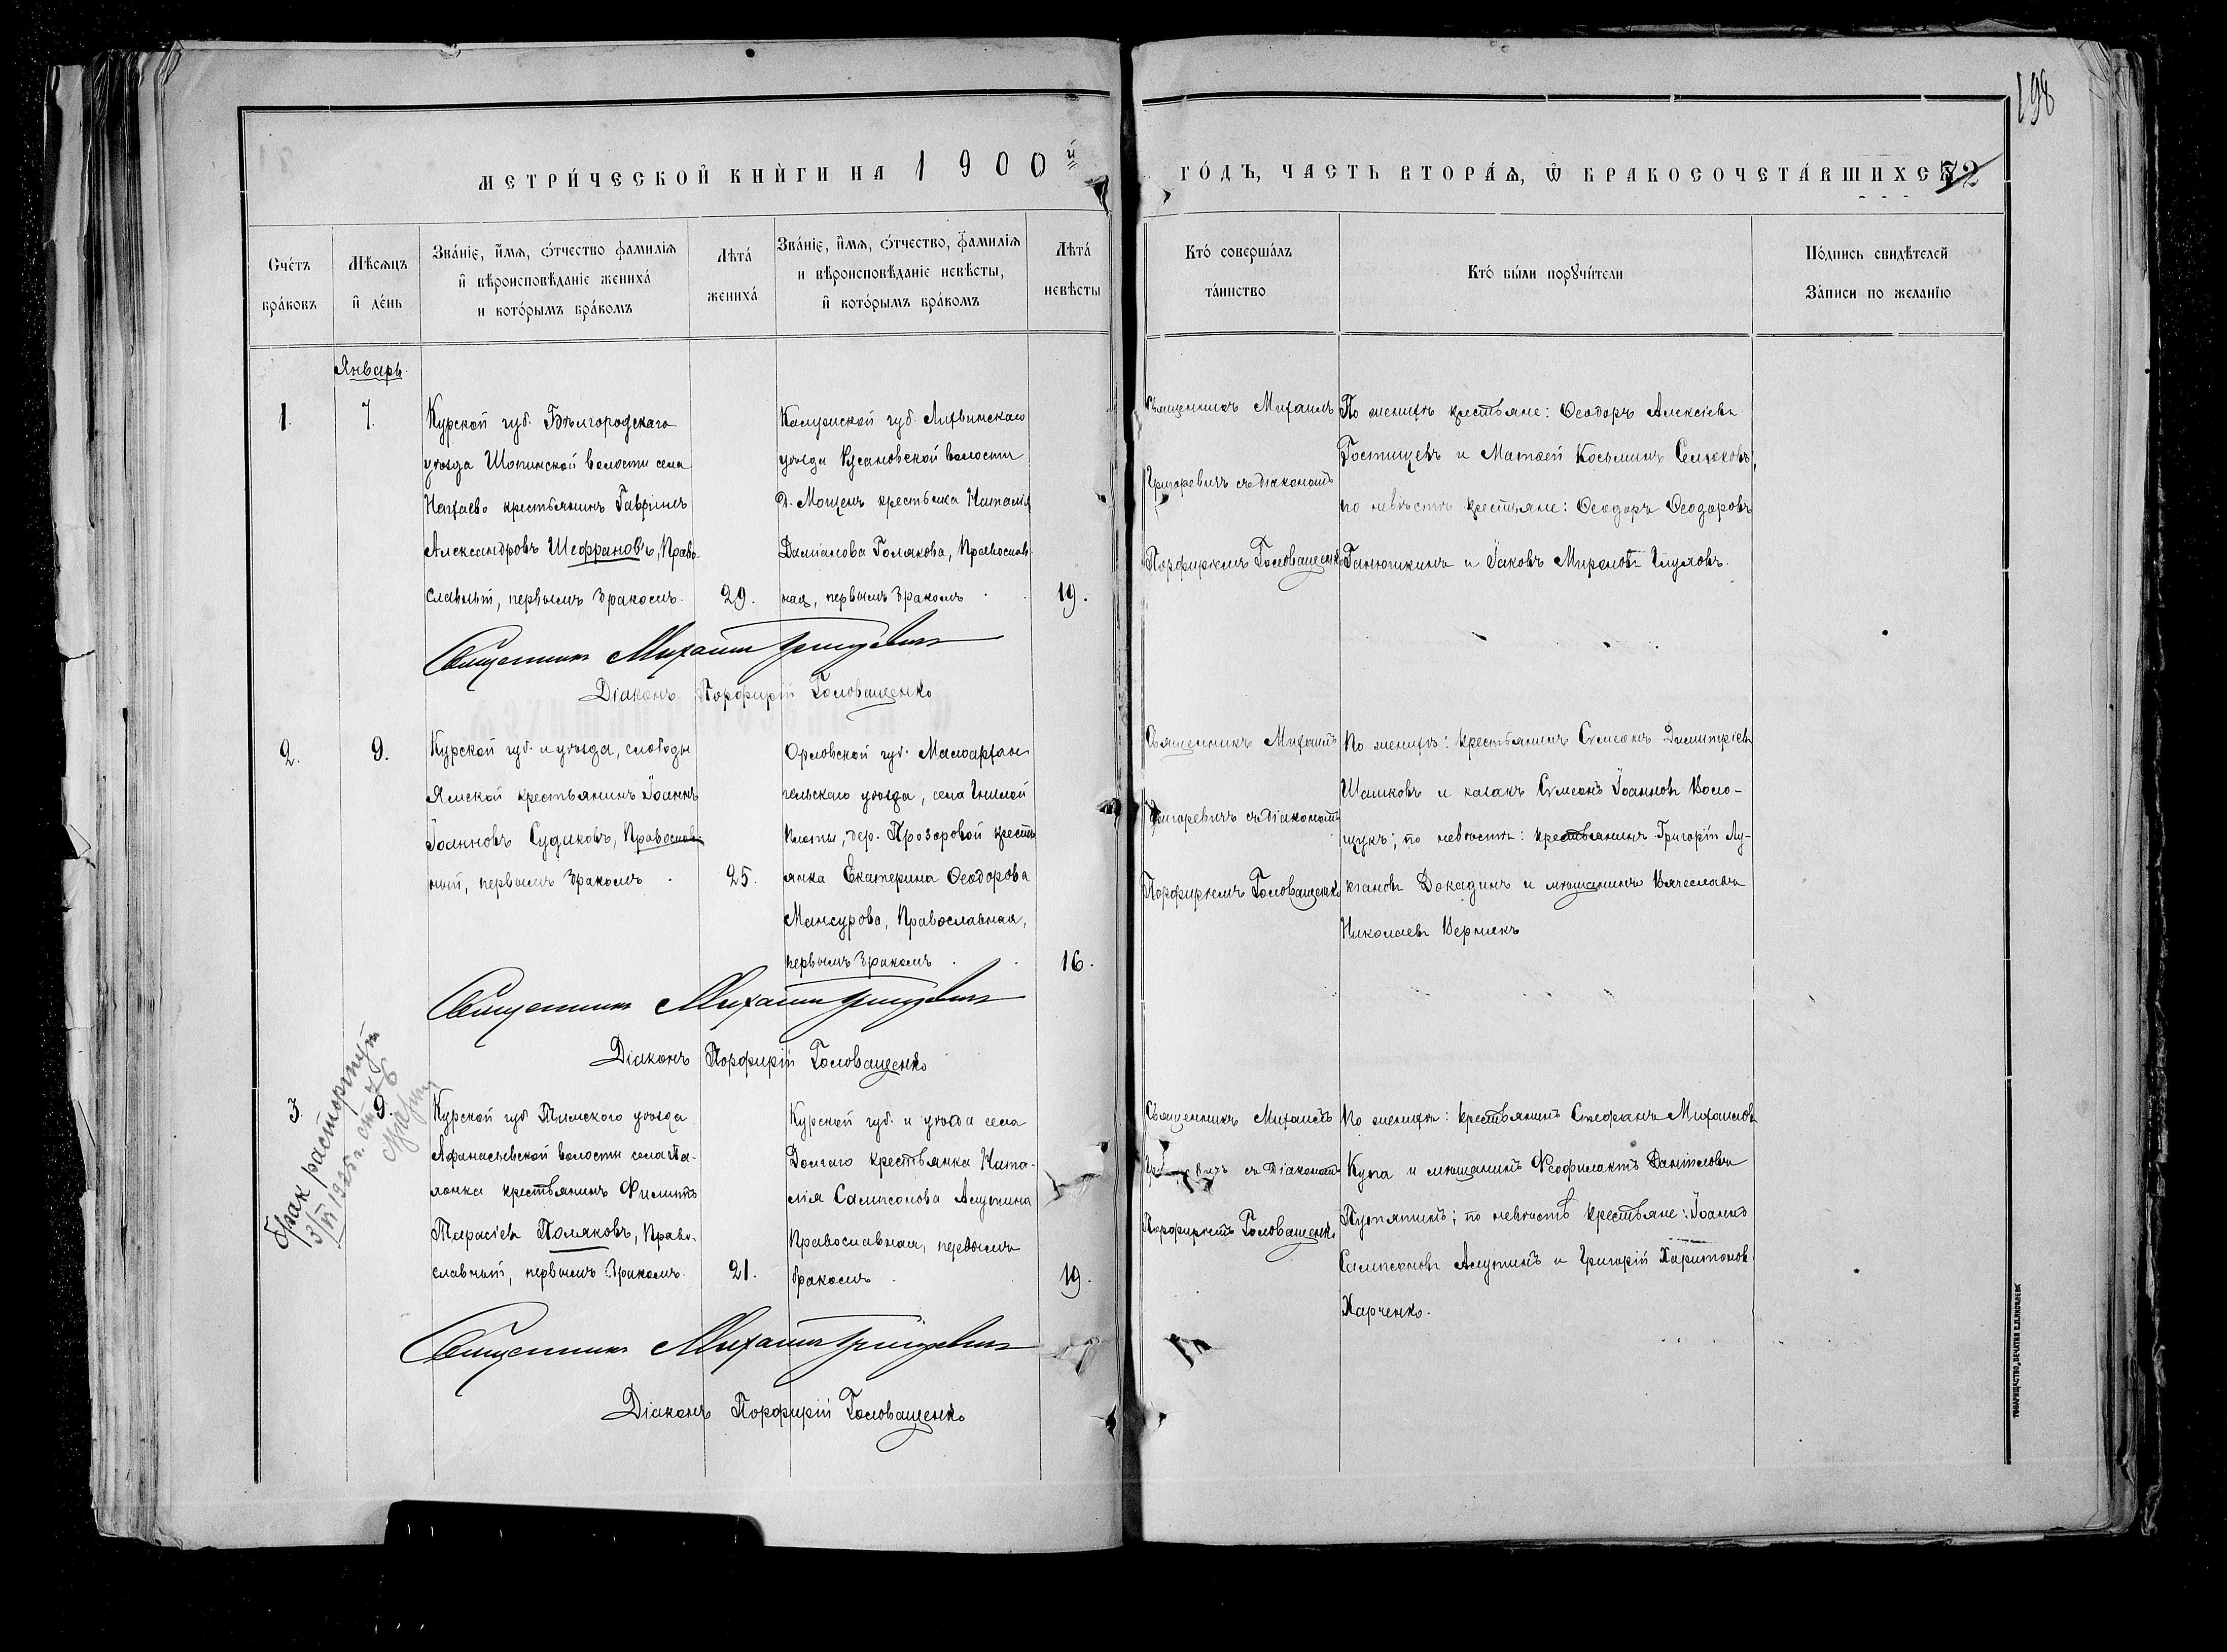 198
МЕТРИ́ЧЕСКОЙ КНИ́ГИ НА 1900й
ГО́ДЪ, ЧАСТЬ ВТОРА́Я, Ѡ҆ БРАКОСОЧЕТА́ВШИХСЯ 72
Сче́тъ бра́ковъ
Мѣсяцъ и҆ де́нь
Зва́нїе, и҆́мя, о҆́тчество фамилїя
и҆ вѣроисповѣданїе жениха́
и кото́рымъ бра́комъ
Лѣта́ жениха́
Зва́нїе, и҆́мя, о҆́тчество, фамилїя
и вѣроисповѣданїе невѣсты,
и҆ кото́рымъ бра́комъ
Лѣта́ невѣсты
Кто́ соверша́лъ
та́инство
Кто́ бы́ли порꙋчи́тели
По́дпись свидѣтелей
За́писи по желанїю
Январь.
1.
7.
Курской губ. Бѣлгородскаго
уѣзда Шопинской волости села
крестьянинъ Гавріилъ
Александровъ Шефрановъ, Право-
славный, первымъ бракомъ.
29.
Калужской губ. Лихвинскаго
уѣзда волости
д. крестьянка Наталія
Даміанова Голякова, Православ-
ная, первымъ бракомъ
19.
Священникъ Михаилъ
Григоревичъ съ діакономъ
Порфиріемъ Головащенко
По женихѣ крестьяне: Ѳеодоръ Алексіевъ
Гостищевъ и Матѳей Косьминъ
по невѣстѣ крестьяне: Ѳеодоръ Ѳеодоровъ
Ганюшкинъ и Іаковъ
Священникъ Михаилъ Григоревич
Діаконъ Порфирій Головащенко
2.
9.
Курской губ. и уѣзда, слободы
Ямской крестьянинъ Іоаннъ
Іоанновъ Судаковъ, Православ-
ный, первымъ бракомъ
25.
Орловской губ. Малоархан-
гельскаго уѣзда, села Гнилой
Плоты, дер. Прозоровой кресть-
янка Екатерина Ѳеодорова
Мансурова, Православная,
первымъ бракомъ
16.
Священникъ Михаилъ
Григоревичъ съ діакономъ
Порфиріемъ Головащенко
По женихѣ: крестьянинъ Симеонъ Димитріевъ
Шашковъ и казакъ Симеонъ Іоанновъ Воло-
щукъ; по невѣстѣ: крестьянинъ Григорій Лу-
кіановъ Докадинъ и мѣщанинъ Вячеславъ
Николаевъ Верникъ
Священникъ Михаилъ Григоревич
Діаконъ Порфирій Головащенко
3.
9.
Брак расторгнут
3/VI 1925 г.
Курской губ. Тимскаго уѣзда
Афанасьевской волости села
крестьянинъ Филиппъ
Тарасіевъ Поляковъ, Право-
славный, первымъ бракомъ.
21.
Курской губ. и уѣзда села
Долгаго крестьянка Ната-
лія Сампсонова Асутина
Православная, первымъ
бракомъ
19.
Священникъ Михаилъ
съ Діакономъ
Порфиріемъ Головащенко
По женихѣ: крестьянинъ Стефанъ Михаиловъ
Купа и мѣщанинъ Ѳеофилактъ Даніиловъ
по невѣстѣ крестьяне: Іоаннъ
Сампсоновъ и Григорій Харитоновъ
Харченко.
Священникъ Михаилъ Григоревич
Діаконъ Порфирій Головащенко